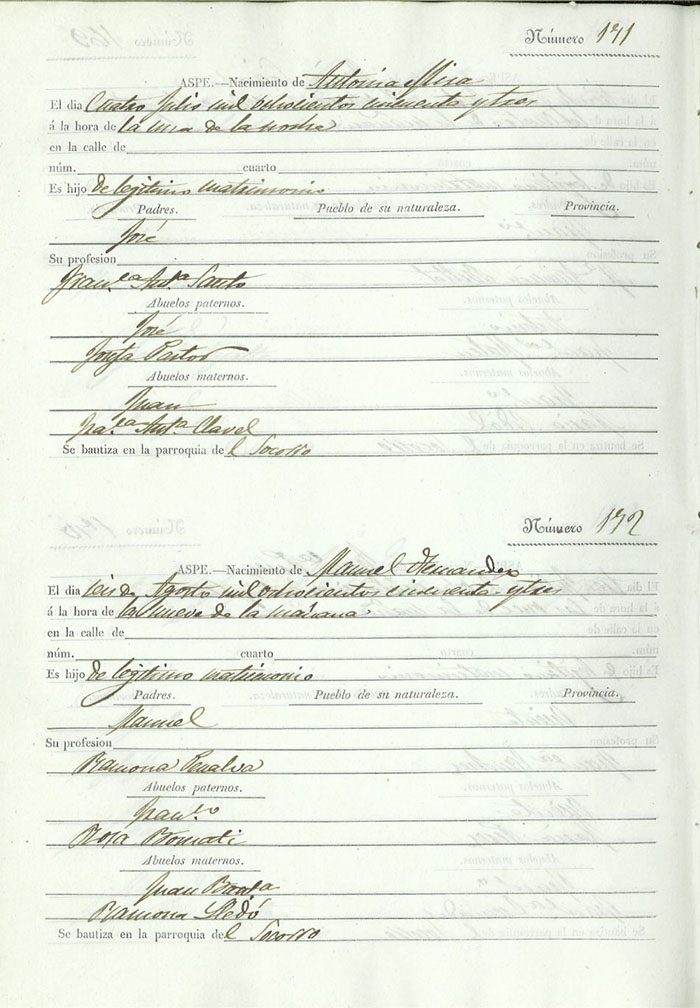 Número 171
ASPE.—Nacimiento de Antonia Mira
El dia Cuatro Julio mil ochocientos cincuenta y tres
á la hora de la una de la noche
en la calle de
núm. cuarto
Es hijo de legitimo matrimonio
Padres. Pueblo de su naturaleza. Provincia.
José
Su profesion
Fran.ca Ant.a Santo
Abuelos paternos.
José
Josefa Pastor
Abuelos maternos.
Juan
Fra.ca Ant.a Clavel
Se bautiza en la parroquia de l Socorro
Número 172
ASPE.—Nacimiento de Manuel Fernandez
El dia seis de Agosto mil ochocientos cincuenta y tres
á la hora de la nueve de la mañana
en la calle de
núm. cuarto
Es hijo de legitimo matrimonio
Padres. Pueblo de su naturaleza. Provincia.
Manuel
Su profesion
Ramona Penalva
Abuelos paternos.
Fran.co
Rosa Bomati
Abuelos maternos.
Juan
Ramona Lledó
Se bautiza en la parroquia de l Socorro